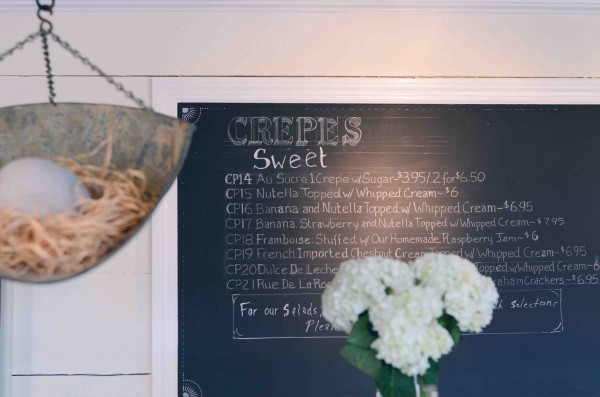 CREPES
Sweet
CP14 Au Sucre 1 Crepe w/ Sugar-$3.95/2 for $6.50
CP15 Nutella Topped w/ Whipped Cream-$6
CP16 Banana and Nutella Topped w/ Whipped Cream-$6.95
CP17 Banana, Strawberry and Nutella Topped w/ Whipped Cream-$7.95
CP18 Framboise: Stuffed w/ Our Homemade Raspberry Jam-$6
CP19 French Imported Chestnut Cream Topped w/ Whipped Cream-$6.95
CP20 Dulce De Leche Topped w/ Whipped Cream-
CP21 Rue De La Crackers-$6.95
For our Salads, Selections